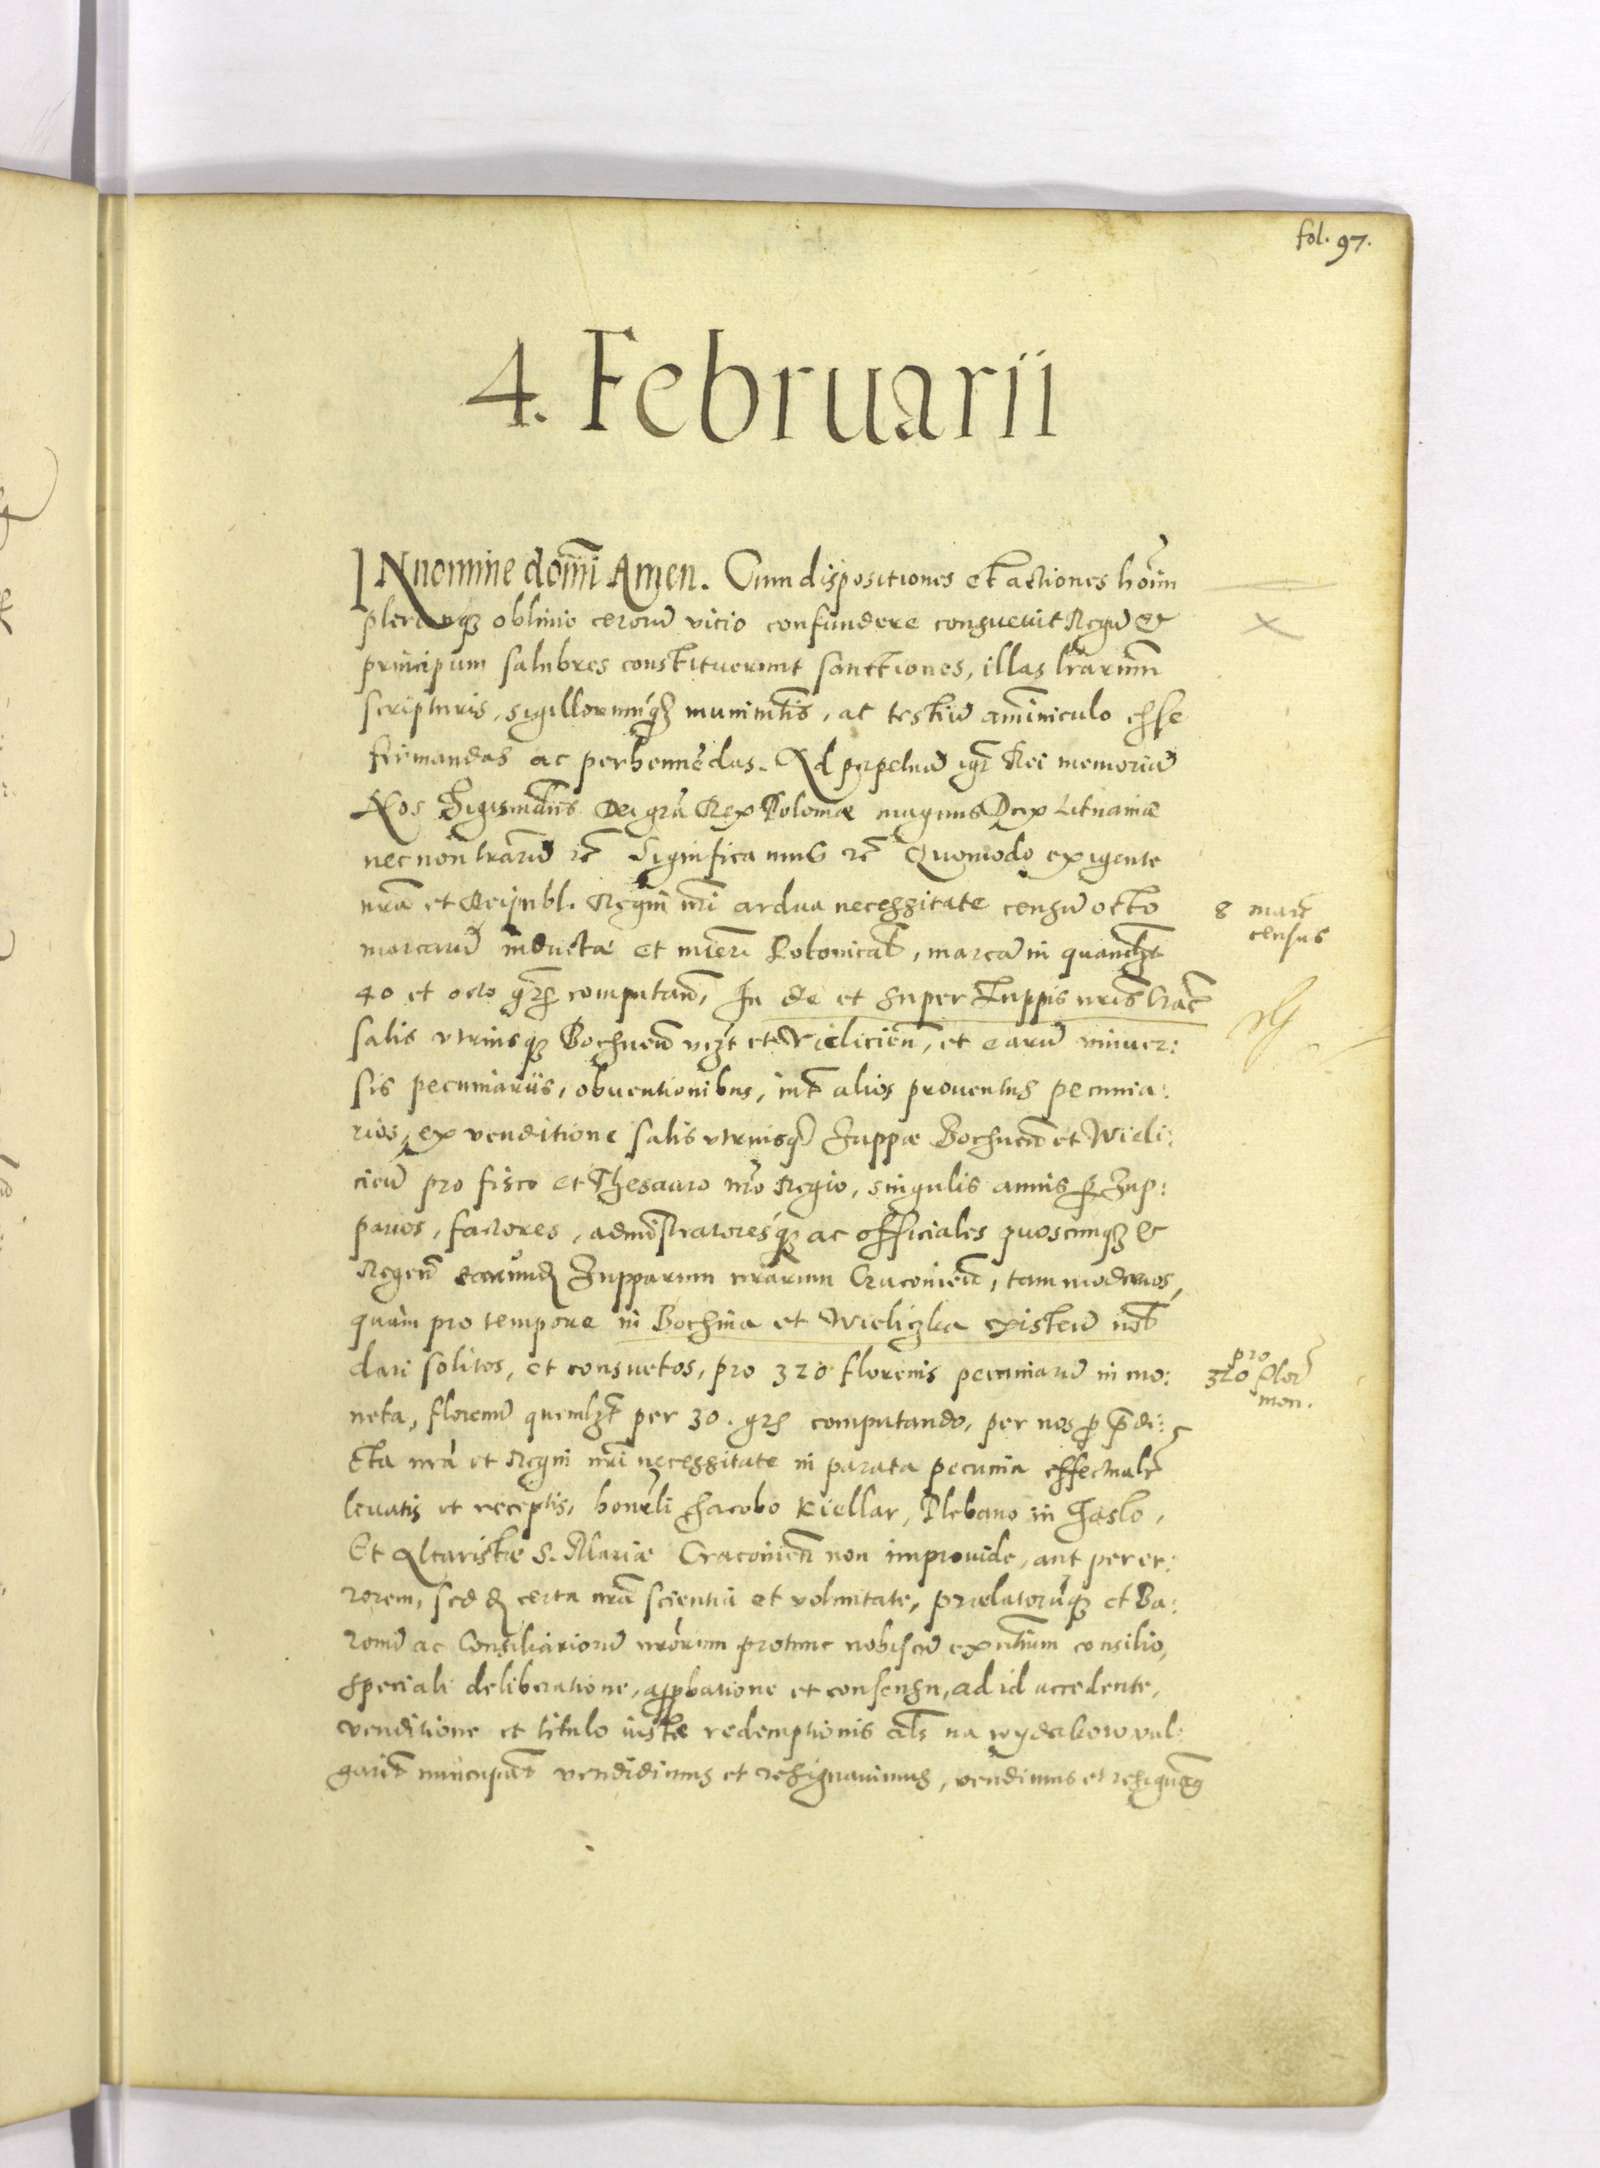 fol. 97.
4. Februarii
IN nomine domi Amen. Cum dispositiones et actiones hoim
plerunq3 obliuio ceroru vicio confundere consueuit Regu &
principum salubres constituerunt sanctiones, illas lrarum
scripturis, sigillorumq3 munimtis, ac testiu aminiculo esse
firmandas ac perhennedas. Ad perpetua igr Rei memoria
Nos Sigismdus Dei gra Rex Poloniae magnus Dux Lituaniae
nec non terraru etc Significamus etc Quomodo exigente
nra et Reipubl. Regni nri ardua necessitate censu octo
marcaru
et
Polonical, marca in quamlibet
40 et octo grs computan, In de et super Zuppis nris Crac
salis vtriusq3 Bochnen vizt et Vielicien, et earu vniuer:
sis pecuniariis, obuentionibus, int alios prouentus pecunia:
rios, ex venditione salis vtriusq3 Zuppae Bochnen et Wieli:
cien pro fisco et Thesauro nro Regio, singulis annis per Zup:
parios, factores, administratoresq3 ac officiales quoscunq3 &
Regen earund Zupparum nrarum Cracouien, tam modernos,
quam pro tempore in Bochnia et Wieliczka existen nob
dari solitos, et consuetos, pro 320 florenis pecuniaru in mo:
neta, florenu quemlzt per 30. grs computando, per nos p predi:
cta nra et Regni nri necessitate in parata pecunia effectualr
leuatis et receptis, honorli Jacobo Kiellar, Plebano in Jaslo,
Et Altaristae S. Mariae Cracouien non improuide, aut per er:
rorem, sed de certa nra scientia et voluntate, praelatoruq3 et Ba:
ronu ac Consiliarioru nrorum protunc nobiscu exntium consilio,
speciali deliberatione, approbatione et consensu, ad id accedente,
venditione et titulo iustae redemptionis als na wyderkow vul:
garit nuncupat vendidimus et resignauimus, vendimus et resignamus
8 marc
census
pro
320 flor
mon.